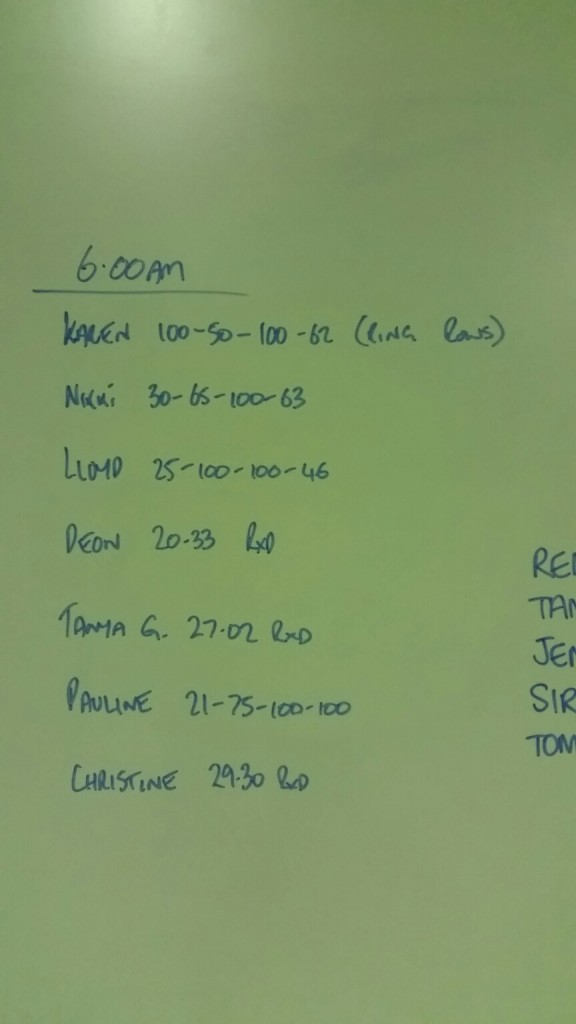 6.00AM
KAREN 100-50-100-62 (RING ROWS)
NIKKI 30-65-100-63
LLOYD 25-100-100-46
DEON 20.33 RXD
TANYA G. 27.02 RXD
PAULINE 21-75-100-100
CHRISTINE 29.30 RXD
RED
TAN
JEN
SIR
TOM